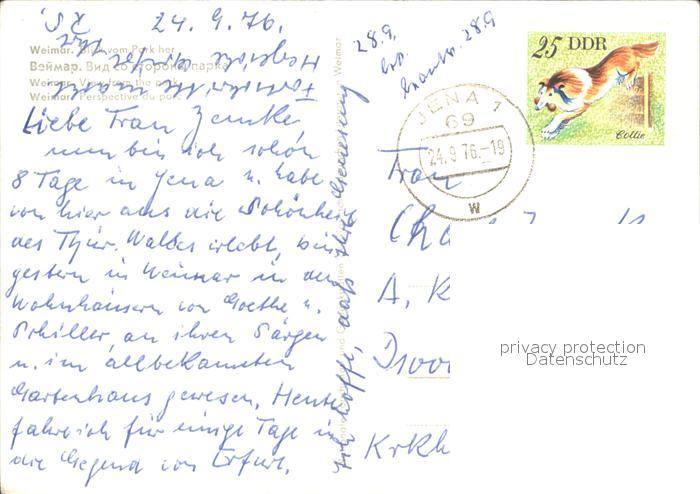 24.9.76.
Weimar. Blick vom Park her
Веймар. Вид со стороны парка
Weimar. View from the park
Weimar. Perspective du parc
Liebe Frau
nun bin ich schon
8 Tage in Jena u. habe
von hier aus die Schönheit
des Thür. Waldes erlebt, bin
gestern in Weimar in den
Wohnhäusern von Goethe u.
Schiller, an ihren Särgen
u. im allbekannten
Gartenhaus gewesen. Heute
fahre ich für einige Tage in
die Gegend von Erfurt.
Ich hoffe, daß Ihre Genesung
28.9.
28.9
25 DDR
Collie
JENA 1
69
24.9.76.-19
w
Frau
A. K
Krkh
privacy protection
Datenschutz